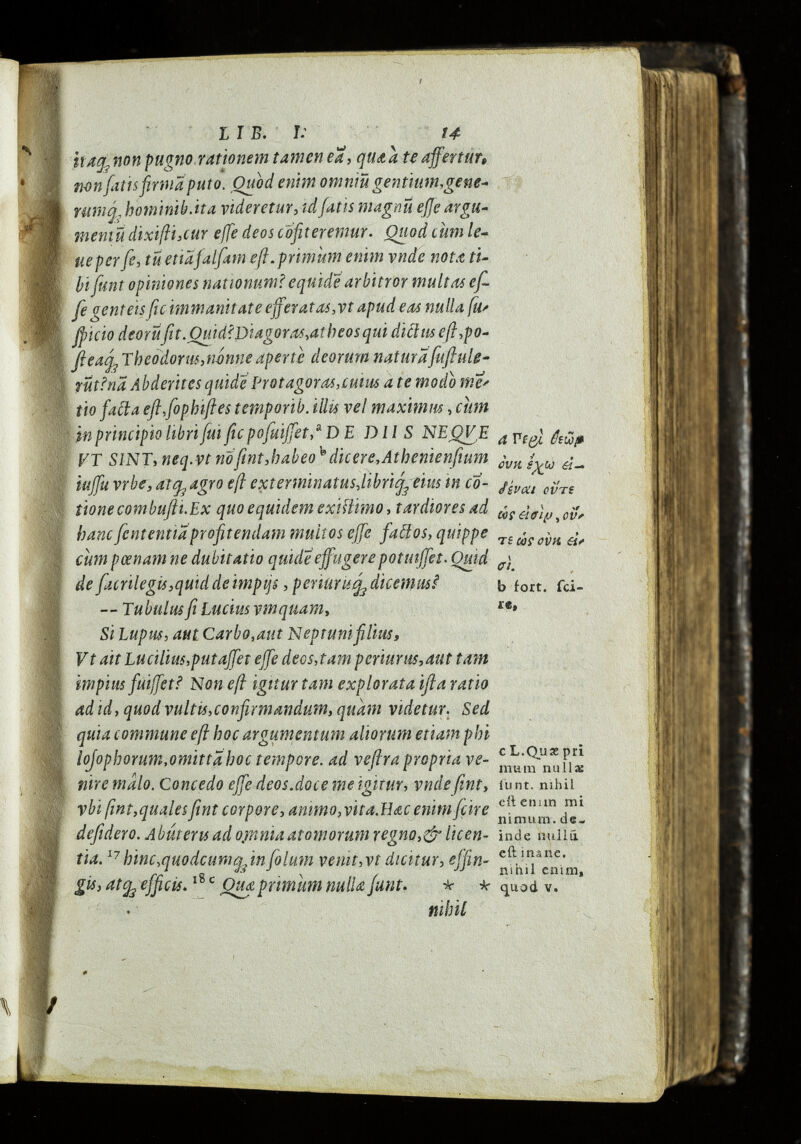 LIB. I. 14
itaq; non pugno. rationem tamen eā, quæ à te affertur,
non satis firmā puto. Quòd enim omniū gentium, gene-
rumq; hominib. ita videretur, id satis magnū esse argu-
mentū dixisti, cur esse deos cōfiteremur. Quod cùm le-
ue per se, tū etiā falsam est. primùm enim vnde notæ ti-
bi sunt opiniones nationum? equidē arbitror multas es-
se genteis sic immanitate efferatas, vt apud eas nulla su-
spicio deorū sit. Quid? Diagoras, atheos qui dictus est, po-
steaq; Theodorus, nónne apertè deorum naturā sustule-
rūt? nā Abderites quidē Protagoras, cuius a te modò mē-
tio facta est, sophistes temporib. illis vel maximus, cùm
in principio libri sui sic posuisset, a DE DIIS NEQVE
VT SINT, neq. vt nō sint, habeo b dicere, Atheniensium
iussu vrbe, atq; agro est exterminatus, libriq; eius in cō-
tione combusti. Ex quo equidem existimo, tardiores ad
hanc sententiā profitendam multos esse factos, quippe
cùm pœnam ne dubitatio quidē effugere potuisset. Quid
de sacrilegis, quid de impijs, periurisq; dicemus?
-- Tubulus si Lucius vmquam,
Si Lupus, aut Carbo, aut Neptuni filius,
Vt ait Lucilius, putasset esse deos, tam periurus, aut tam
impius fuisset? Non est igitur tam explorata ista ratio
ad id, quod vultis, confirmandum, quàm videtur. Sed
quia commune est hoc argumentum aliorum etiam phi
losophorum, omittā hoc tempore. ad vestra propria ve-
nire malo. Concedo esse deos. doce me igitur, vnde sint,
vbi sint, quales sint corpore, animo, vita. Hæc enim scire
desidero. Abuteris ad omnia atomorum regno, & licen-
tia. 17 hinc, quodcumq; in solum venit, vt dicitur, effin-
gis, atq; efficis. 18 c Quæ primùm nullæ sunt. * *
nihil
a Περὶ θεῶν
οὐκ ἔχω εἰ-
δέναι οὔτε
ὡς εἰσὶν, οὔ-
τε ὡς οὐκ εἰ-
σί.
b fort. sci-
re,
c L. Quæ pri
mum nullæ
sunt. nihil
est enim mi
nimum. de-
inde nullū
est inane.
nihil enim,
quod v.